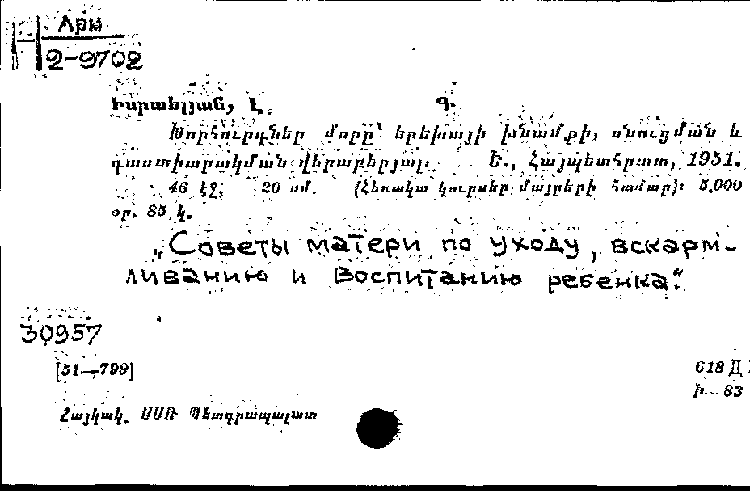 Арм
2-9702
Իսրաելյան, Է. Գ.
Խորհուրդներ մորը՝ երեխայի խնամքի, սնուցման և
դաստիարակման վերաբերյալ. Ե., Հայպետհրատ, 1951.
46 էջ; 20 սմ. (Հեռակա կուրսեր մայրերի համար): 5,000
օր. 85 կ.
„Советы матери по уходу, вскарм-
ливанию и воспитанию ребенка."
30957
[51—799]
618 Д
Ի—83
Հայկակ. ՍՍՌ Պետգրապալատ